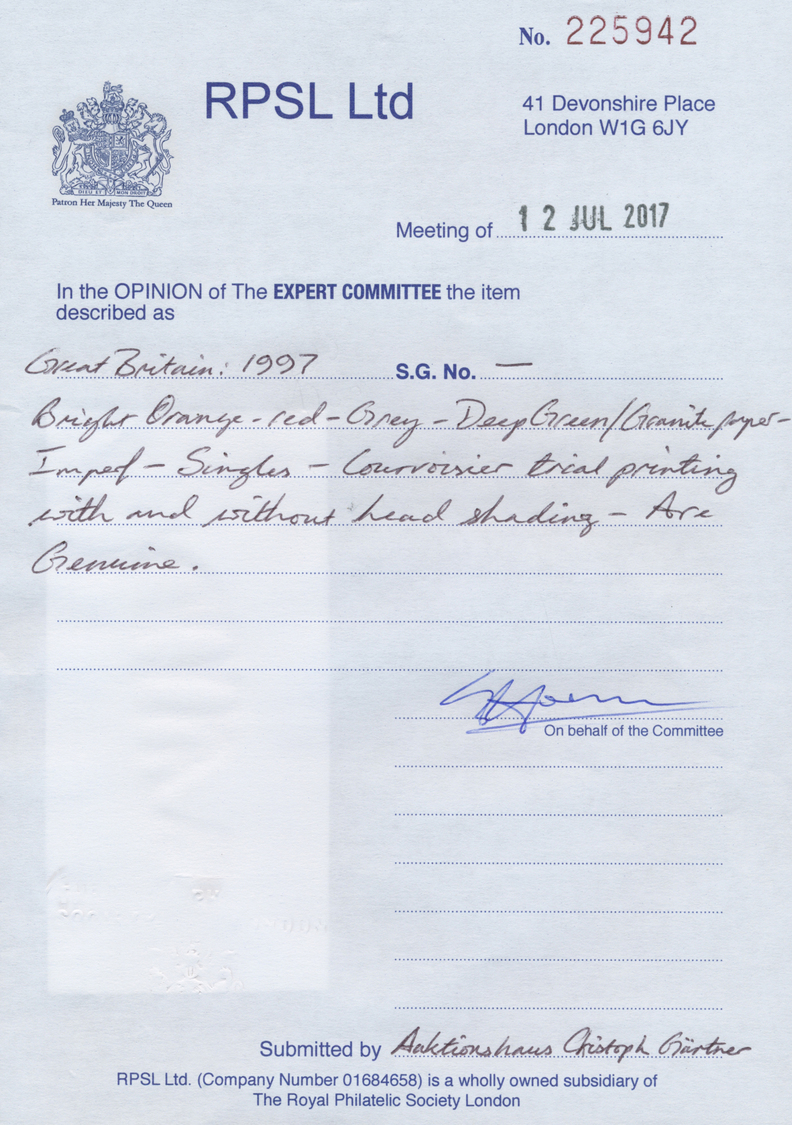 No. 225942
RPSL Ltd
41 Devonshire Place
London W1G 6JY
DIEU ET MON DROIT
Patron Her Majesty The Queen
Meeting of 12 JUL 2017
In the OPINION of The EXPERT COMMITTEE the item
described as
Great Britain: 1997 S.G. No. —
Bright Orange-red-Grey-Deep Green/Granite paper-
Imperf - Singles - Courvoisier trial printing
with and without head shading - Are
Genuine.
On behalf of the Committee
Submitted by Auktionshaus Christoph Gärtner
RPSL Ltd. (Company Number 01684658) is a wholly owned subsidiary of
The Royal Philatelic Society London